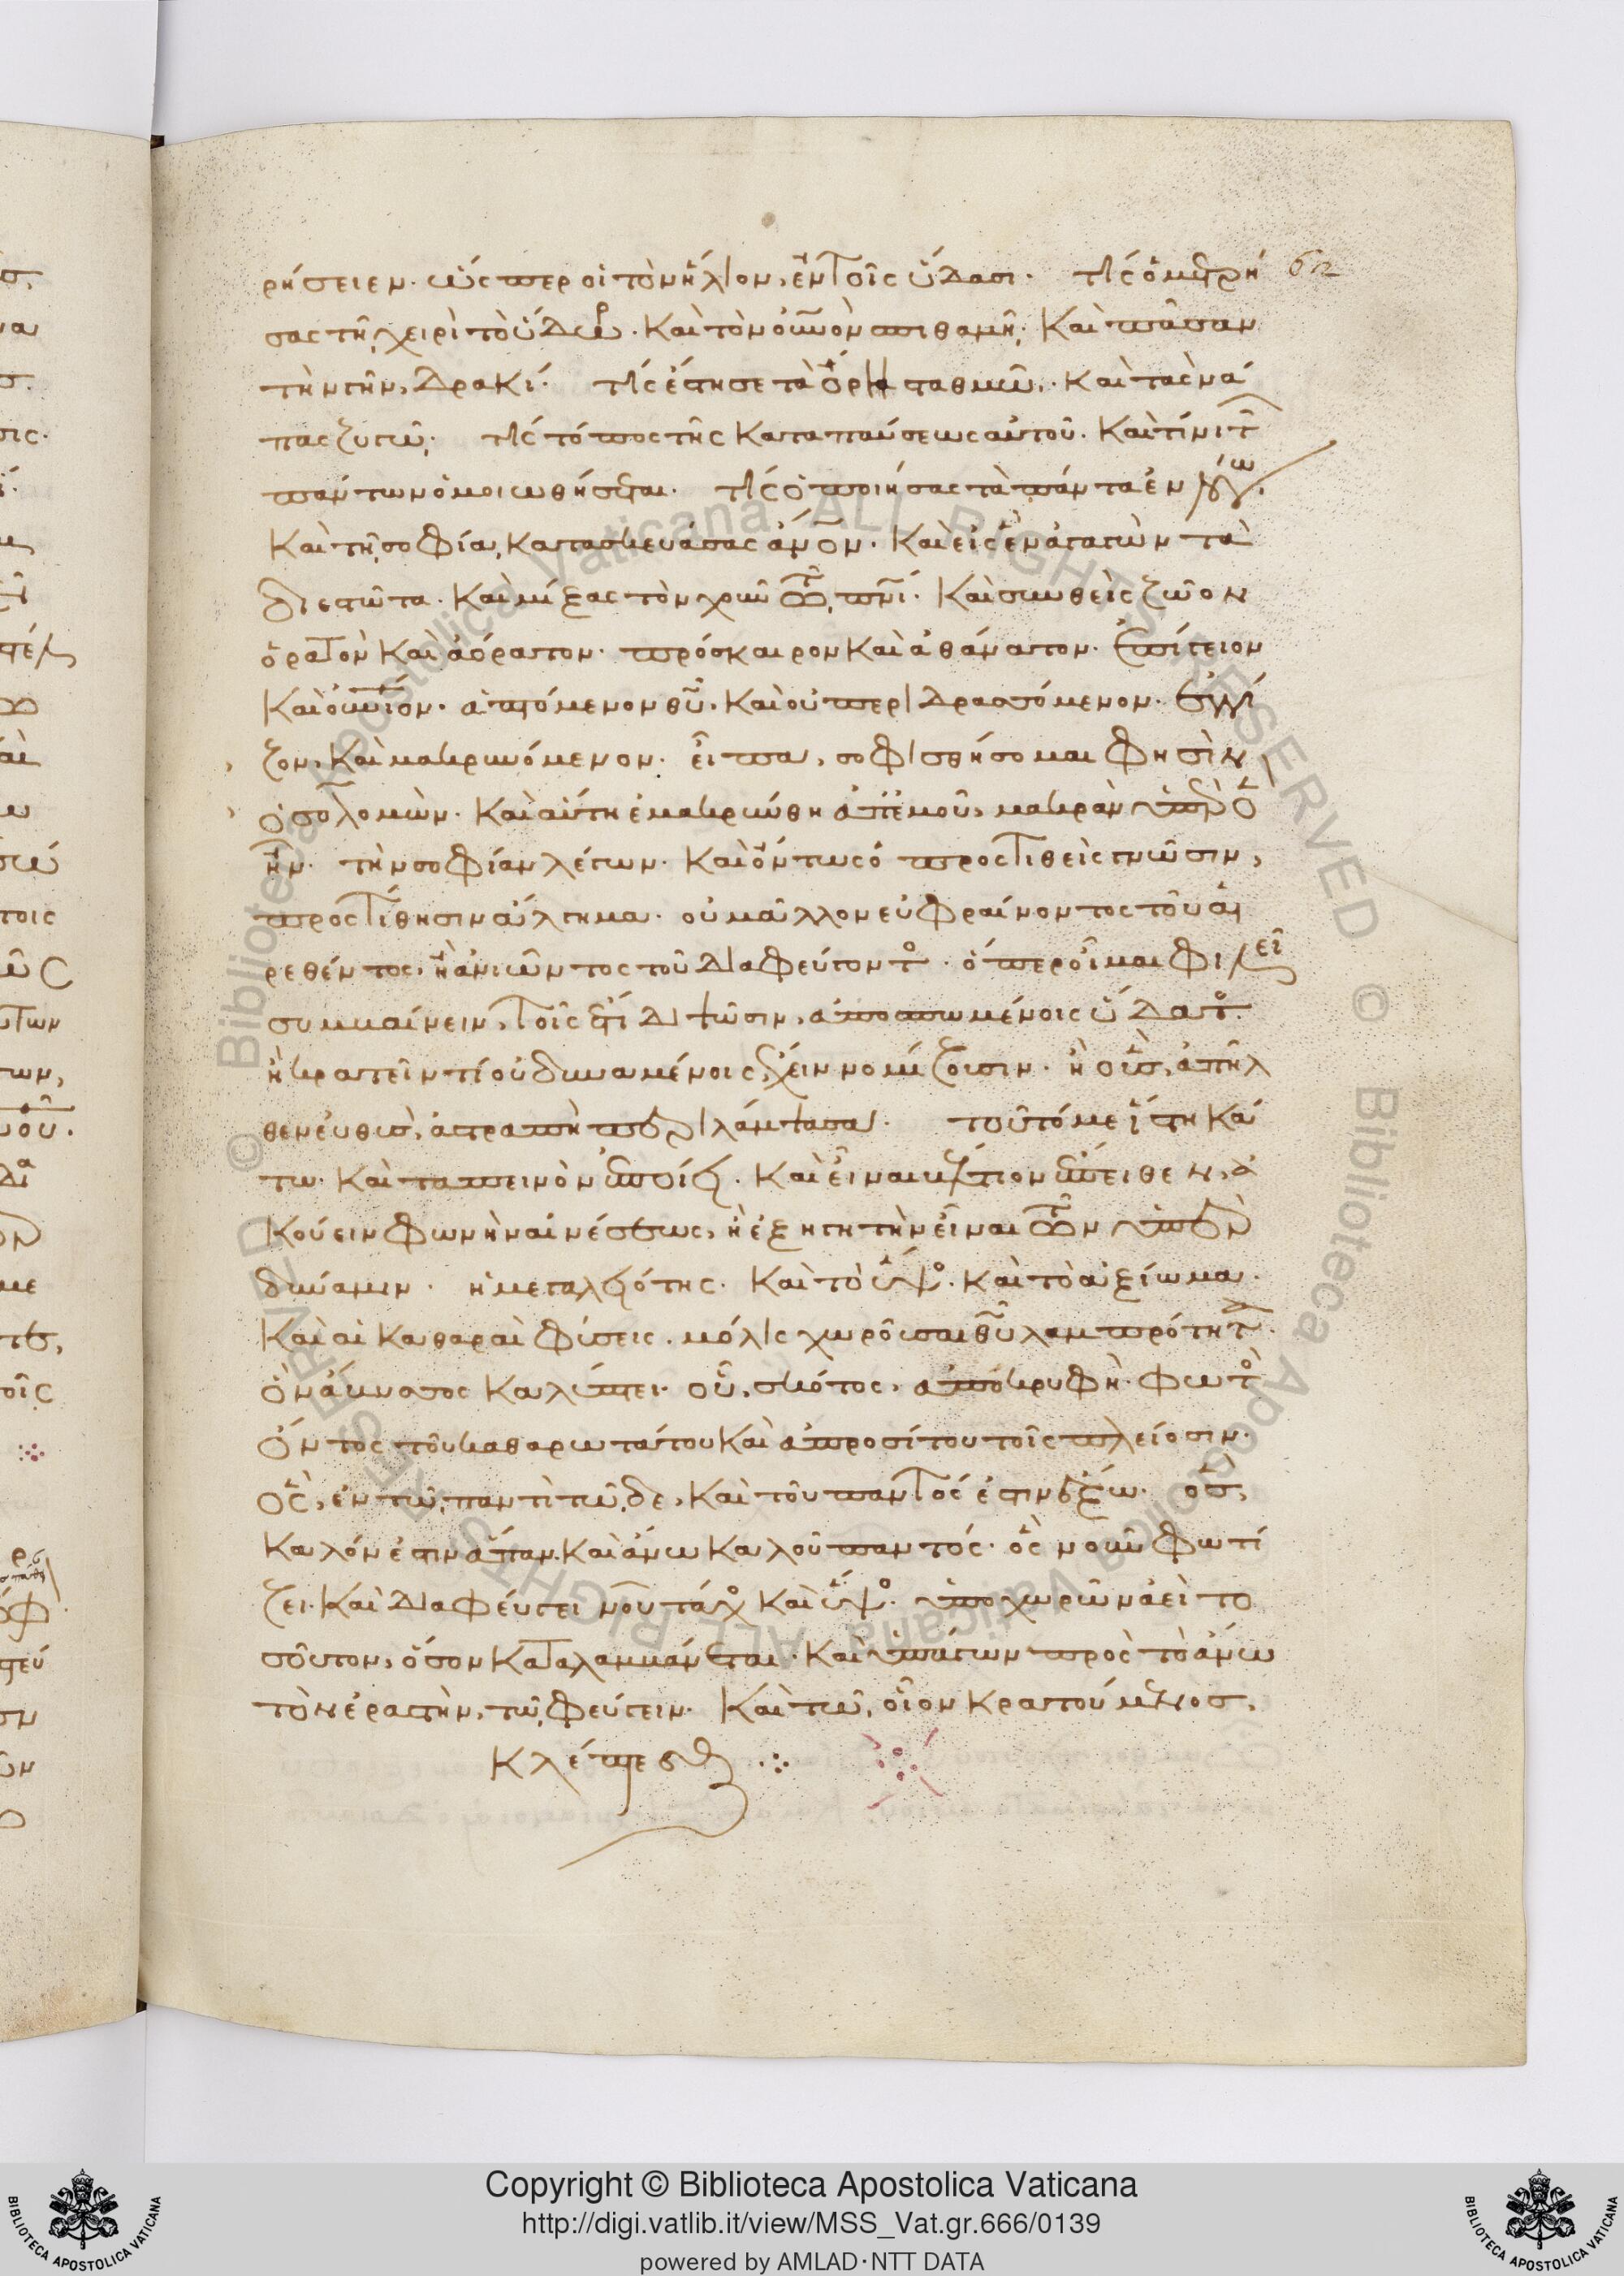 ρήσειεν· ὥσπερ οἱ τὸν ἥλιον, ἐν τοῖς ὕδασι· τίς ὁ μετρή 62
σας τῇ χειρὶ τὸ ὕδωρ· καὶ τὸν οὐνὸν σπιθαμῇ· καὶ πᾶσαν
τὴν γῆν, δρακί· τίς ἔστησε τὰ ὄρη σταθμῶ· καὶ τὰς νά
πας ζυγῶ· τίς τόπος τῆς καταπαύσεως αὐτοῦ· καὶ τίνι τῶν
πάντων ὁμοιωθήσεται· τίς ὁ ποιήσας τὰ πάντα ἐν λόγω·
καὶ τῇ σοφία, κατασκευάσας ἄνον· καὶ εἰς ἓν ἀγαγὼν τὰ
διεστῶτα· καὶ μίξας τὸν χοῦν τῶ πνι· καὶ συνθεὶς ζῶον
ὁρατὸν καὶ ἀόρατον· πρόσκαιρον καὶ ἀθάνατον· ἐπίγειον
καὶ οὐνιον· ἁπτόμενον θυ· καὶ οὐ περιδρασσόμενον· ἐγγί
ζον, καὶ μακρυνόμενον· εἶπα, σοφισθήσομαι φησὶν
ὁ σολομών· καὶ αὕτη ἐμακρύνθη ἀπ' ἐμοῦ, μακρὰν ὑπὲρ ὃ
ἦν· τὴν σοφίαν λέγων· καὶ ὄντως ὁ προστιθεὶς γνῶσιν,
προστίθησιν ἄλγημα· οὐ μᾶλλον εὐφραίνοντος τοῦ εὑ
ρεθέντος, ἢ ἀνιῶντος τοῦ διαφεύγοντος· ὅπερ οἶμαι φιλεῖ
συμβαίνειν, τοῖς ἔτι διψῶσιν, ἀποσπωμένοις ὕδατος·
ἢ κρατεῖν τί οὐ δυναμένοις, ὃ ἔχειν νομίζουσιν· ἢ οὓς, ἀπῆλ
θεν εὐθὺς, ἀστραπὴ περιλάμψασα· τοῦτό με ἵστη κά
τω· καὶ ταπεινὸν ἐποίει· καὶ εἶναι κρεῖττον ἔπειθεν, ἀ
κούειν φωνὴν αἰνέσεως, ἢ ἐξηγητὴν εἶναι τῶν ὑπὲρ
δύναμιν· ἡ μεγαλειότης· καὶ τὸ ὕψος· καὶ τὸ ἀξίωμα·
καὶ αἱ καθαραὶ φύσεις, μόλις χωροῦσαι θυ λαμπρότητα·
ὃν ἄβυσσος καλύπτει· οὗ, σκότος, ἀποκρυφὴ· φωτὸς
ὄντος τοῦ καθαρωτάτου καὶ ἀπροσίτου τοῖς πλείοσιν·
ὃς, ἐν τῷ παντὶ τῷδε, καὶ τοῦ παντός ἐστιν ἔξω· ὃς,
καλόν ἐστιν ἅπαν, καὶ ἄνω καλοῦ παντός· ὃς νοῦν φωτί
ζει· καὶ διαφεύγει νοῦ τάχος καὶ ὕψος· ὑποχωρῶν ἀεὶ το
σοῦτον, ὅσον καταλαμβάνεται· καὶ ὑπάγων πρὸς τὸ ἄνω
τὸν ἐραστὴν, τῷ φεύγειν· καὶ τῶ, οἷον κρατούμενος,
κλέπτεσθαι ·:·
Copyright © Biblioteca Apostolica Vaticana
http://digi.vatlib.it/view/MSS_Vat.gr.666/0139
powered by AMLAD·NTT DATA